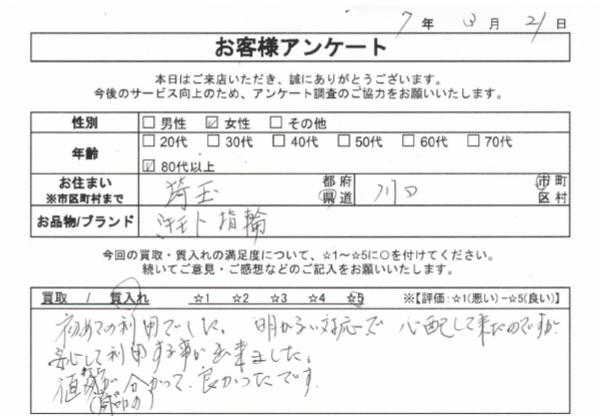 7年 3月 21日
お客様アンケート
本日はご来店いただき、誠にありがとうございます。
今後のサービス向上のため、アンケート調査のご協力をお願いいたします。
性別 □ 男性 ☑ 女性 □ その他
年齢 □ 20代 □ 30代 □ 40代 □ 50代 □ 60代 □ 70代
☑ 80代以上
お住まい ※市区町村まで 埼玉 都府県道 川口 市町区村
お品物/ブランド 指輪
今回の買取・質入れの満足度について、☆1～☆5に○を付けてください。
続いてご意見・ご感想などのご記入をお願いいたします。
買取 / 質入れ ☆1 ☆2 ☆3 ☆4 ☆5 ※【評価：☆1(悪い)－☆5(良い)】
初めての利用でした。明かるい対応で 心配して来たのですが
安心して利用する事が出来ました。
分かって、良かったです